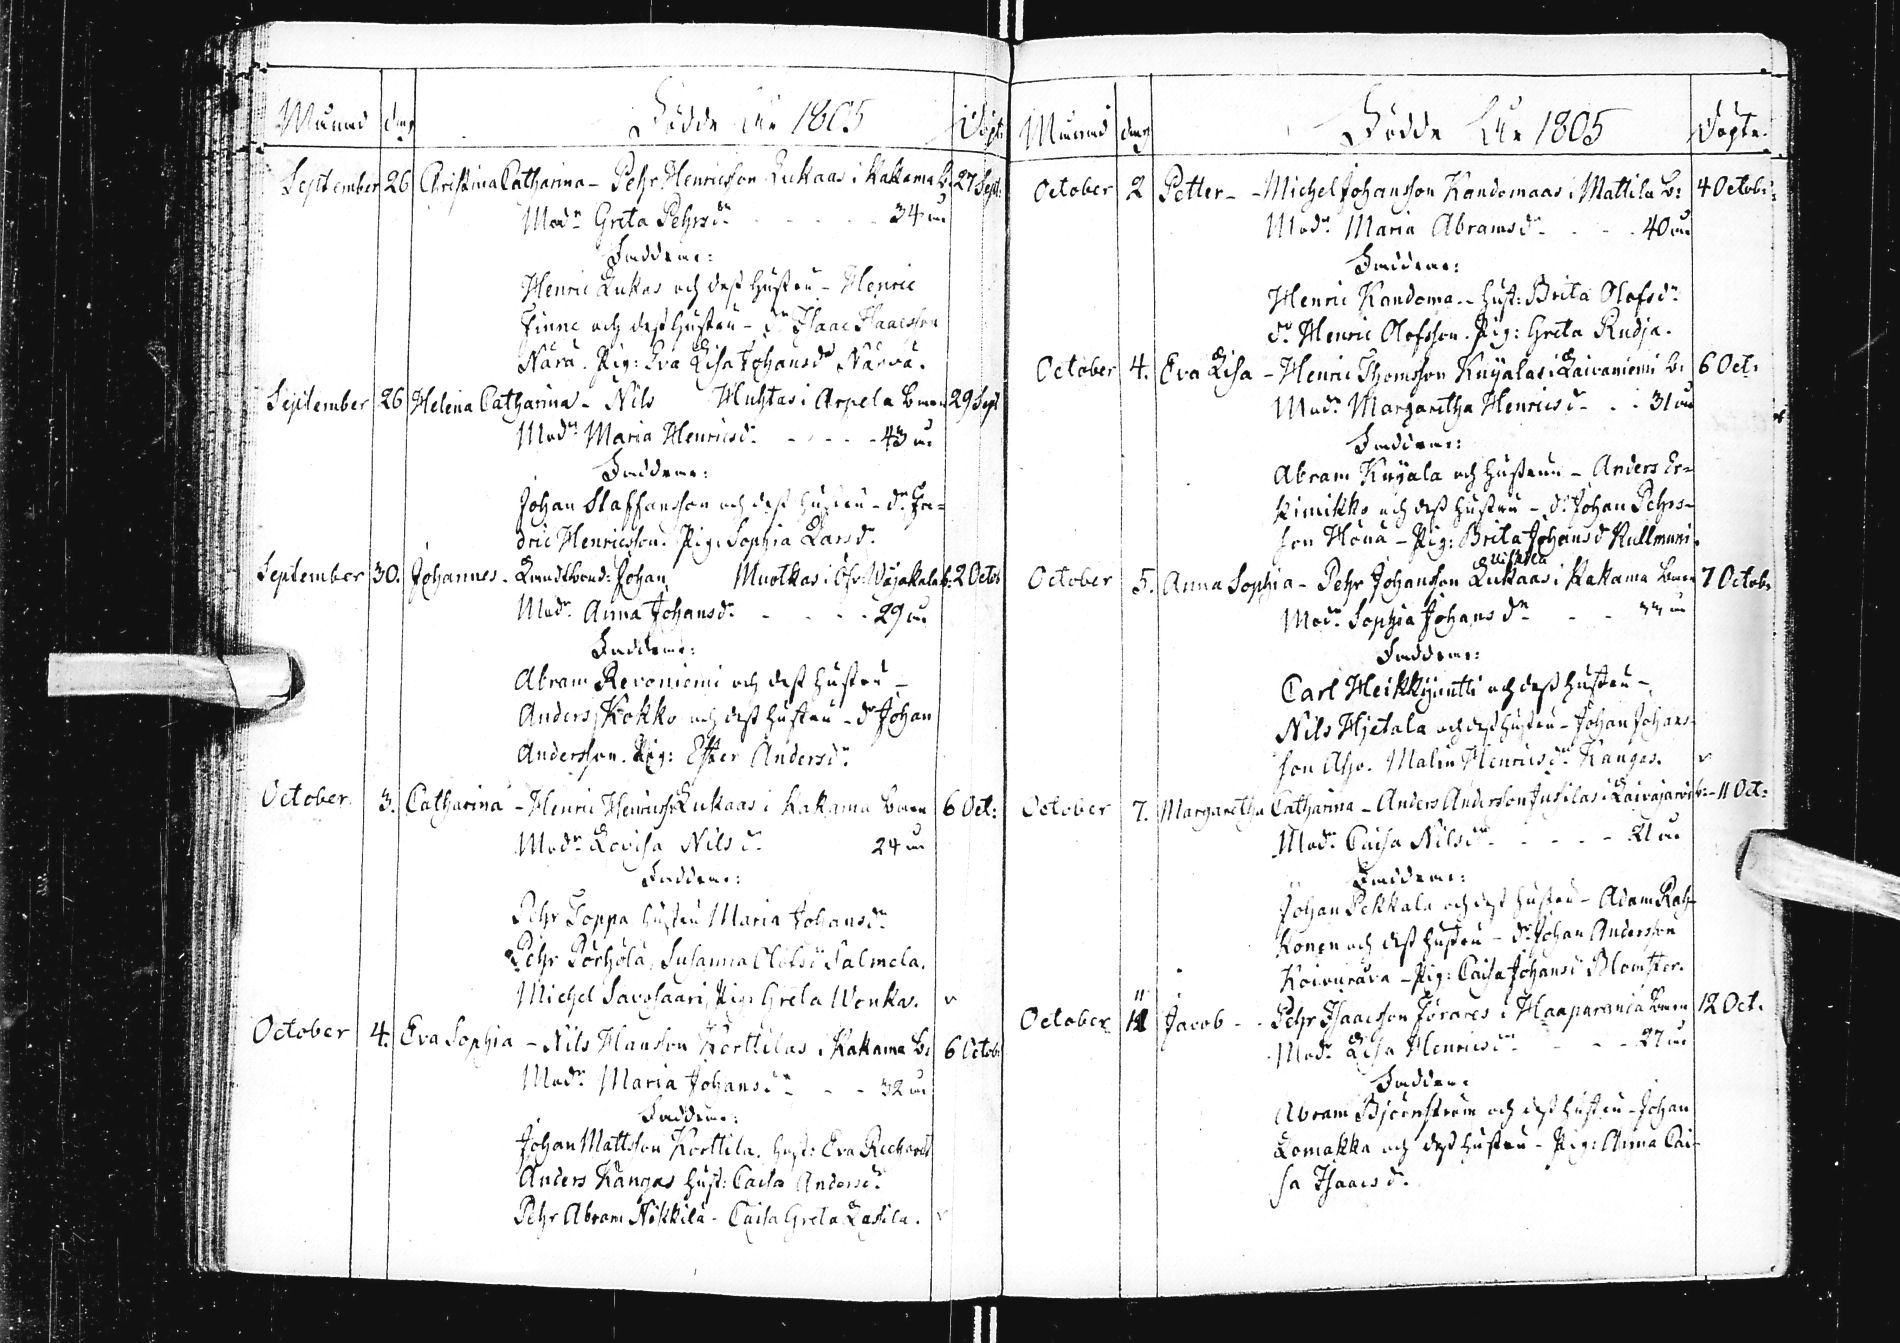 Månad dag Födde Åhr 1805 Döpt:
September 26 Christina Catharina - Pehr Henricsson Lukaas i Kakama B: 27 Sept:
Modn Greta Pehrsdr 34 år
Faddrar:
Henric Lukas och dess hustru - Henric
Finne och dess hustru - dr Isaac Isaacsson
Närä. Pig: Eva Lisa Johansdr Närvä.
September 26 Helena Catharina - Nils Huhtas i Arpela By 29 Sept
Modn Maria Henricsdr 43 år
Faddrar:
Johan Staffansson och dess hustru - dr Fre=
dric Henricsson. Pig: Sophia Larsdr
September 30. Johannes - Landbond: Johan Muotkas i Öfr: Vojakala b: 2 Octob
Modn Anna Johansdr 29 år
Faddrar:
Abram Revoniemi och dess hustru -
Anders Kokko och dess hustru - dr Johan
Andersson. Pig: Ester Andersdr
October 3. Catharina - Henric Henricss Lukaas i Kakama By 6 Oct:
Modn Lovisa Nilsdr 24 år
Faddrar:
Pehr Toppa hustru Maria Johansdr
Pehr Pörhölä, Susanna Olofsdr Salmela.
Michel Savosaari, Pig: Greta Wonka.
October 4. Eva Sophia - Nils Hansson Korttilas i Kakama B: 6 Octob:
Modn Maria Johansdr 32 år
Faddrar:
Johan Mattsson Korttila. hust: Eva Richards
Anders Kangas hust: Caisa Andersdr
Pehr Abram Nikkilä - Caisa Greta Lassila.
Månad dag Födde Åhr 1805 Döpte.
October 2 Petter - Michel Johansson Kandomaas i Mattila B: 4 Octob:
Modn Maria Abramsdr 40 år
Faddrar:
Henric Kandoma - Hust: Brita Olofsdr
dr Henric Olofsson. Pig: Greta Rudja.
October 4. Eva Lisa - Henric Thomsson Knyalas i Laivaniemi B: 6 Oct:
Modn Margaretha Henricsdr 31 år
Faddrar:
Abram Knyala och hustrun - Anders Er=
kinikko och dess hustru - dr Johan Pehrs-
son Houa - Pig: Brita Johansd Kullmuni.
October 5. Anna Sophia - Pehr Johansson Lukaas i Kakama By 7 Octob:
Modn Sophia Johansdr år
Faddrar:
Carl Heikkijuntti och dess hustru -
Nils Hjetala och dess hustru - Johan Johans-
son Alho. Malin Henricsdr Kangas.
October 7. Margaretha Catharina - Anders Andersson Jusilas i Laivajärvi b: - 11 Oct:
Modn Caisa Nilsdr 21 år
Faddrar:
Johan Pekkala och dess hustru - Adam Rah-
konen och dess hustru - dr Johan Andersson
Koivurova - Pig: Caisa Johansd Blomster.
October 11 Jacob - Pehr Isaacsson Jörares i Haaparanda By 12 Oct:
Modn Lisa Henricsdr 27 år
Faddrar:
Abram Björnström och dess hustru - Johan
Lomakka och dess hustru - Pig: Anna Cai-
sa Isaacsdr